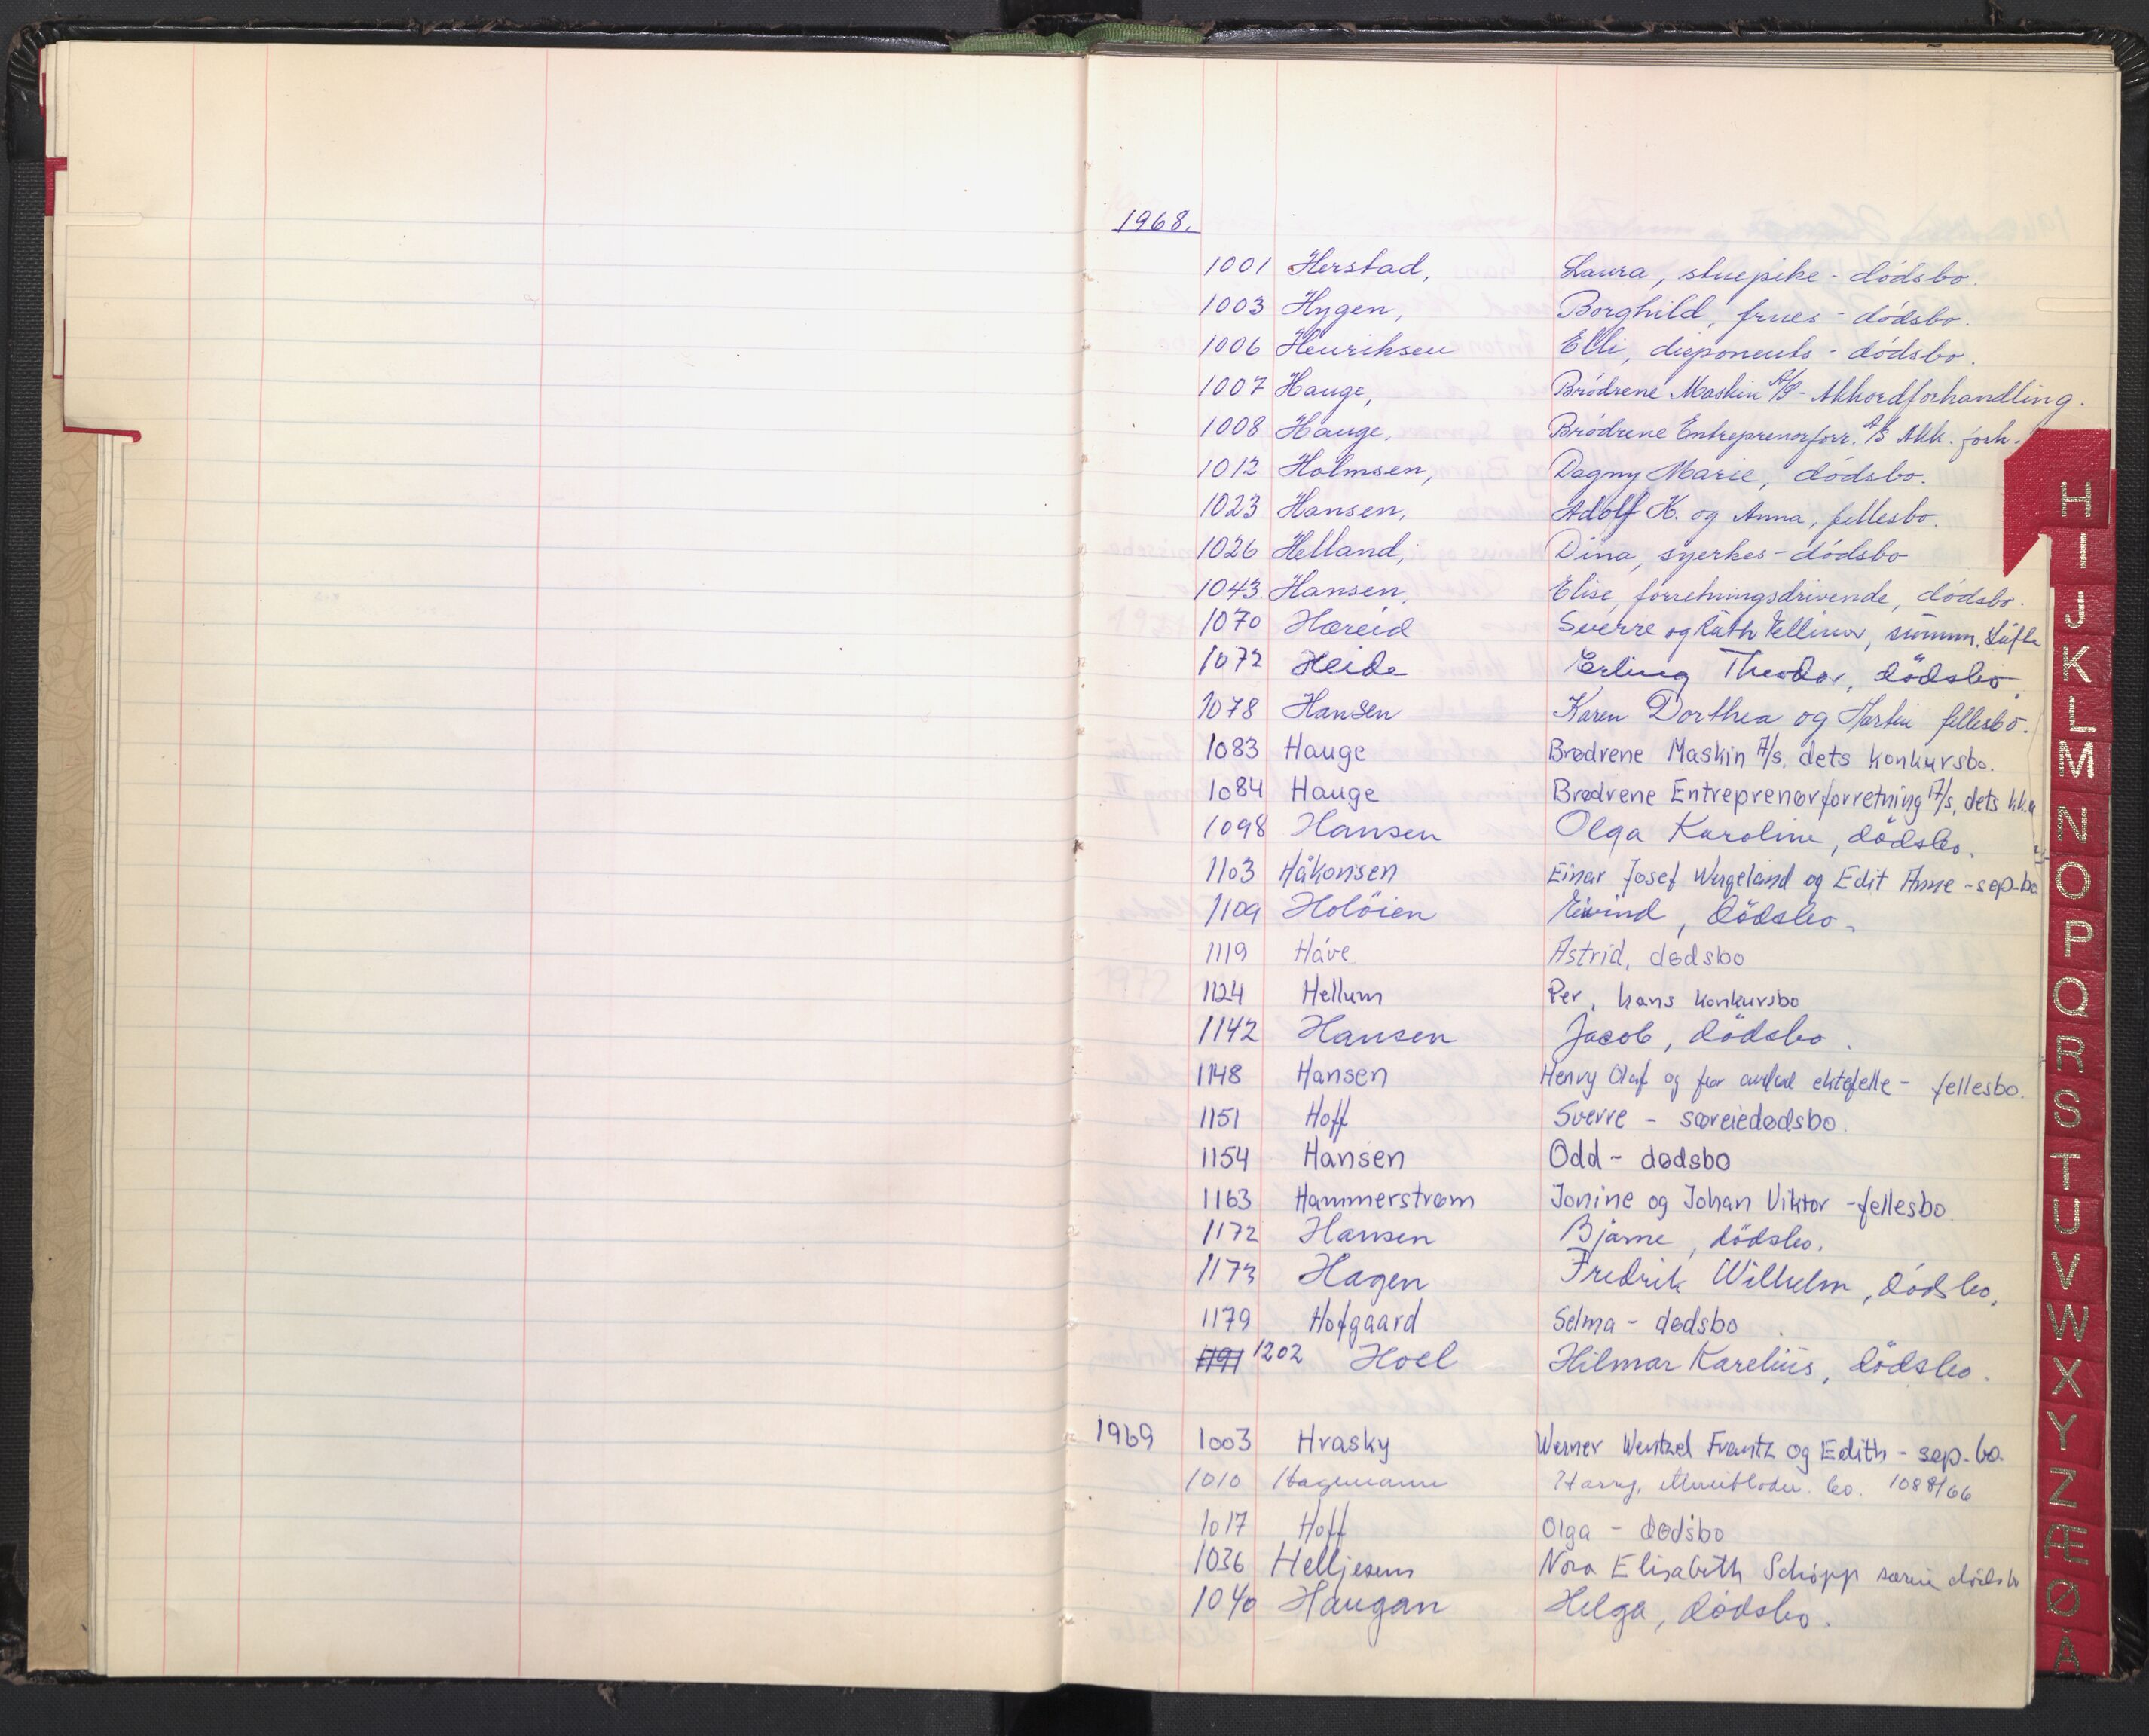 1968.
1001 Herstad, Laura, stuepike - dódsbo.
1003 Hygen, Borghild, frues - dódsbo.
1006 Henriksen Elli, disponents - dódsbo.
1007 Hauge, Bródrene Maskin A/S - Akkordforhandling.
1008 Hauge, Bródrene Entreprenørforr. A/S Akk. forh.
1012 Holmsen, Dagny Marie, dódsbo.
1023 Hansen, Adolf H. og Anna, fellesbo.
1026 Helland, Dina, syerkes - dódsbo
1043. Hansen, Elise, forretningsdrivende, dódsbo.
1070 Hareid Sverre og Ruth Ellinor, summ.
1072 Heide Erling Theodor, dödsbo.
1078 Hansen Karen Dorthea og Martin fellesbo.
1083 Hauge Brødrene Maskin A/s. dets konkursbo.
1084 Hauge Brødrene Entreprenørforretning A/s, dets
1098 Hansen Olga Karoline, dödsbo.
1103 Håkonsen Einar Josef Wergeland og Edit Anne - sep-bo
1109 Holöien Eivind, dödsbo.
1119 Håve Astrid, dødsbo
1124 Hellum Per, hans konkursbo
1142 Hansen Jacob, dödsbo.
1148 Hansen Henry Olaf og før avdød ektefelle - fellesbo.
1151 Hoff Sverre - særeiedødsbo.
1154 Hansen Odd - dødsbo
1163 Hammerstrøm Jonine og Johan Viktor - fellesbo
1172 Hansen Bjarne, dödsbo.
1173 Hagen Fredrik Wilhelm, dödsbo.
1179 Hofgaard Selma - dødsbo
1191 1202 Hoel Hilmar Karelius, dödsbo.
1969 1003 Hrasky Werner Wentzel Frantz og Edith - sep-bo.
1010 Hagemann Harry, bo. 1088/66
1017 Hoff Olga - dødsbo
1036 Helljesen Nora Elisabeth Schöpp særeie dødsbo
1040 Haugan Helga, dódsbo.
H
I
J
K
L
M
N
O
P
Q
R
S
T
U
V
W
X
Y
Z
Æ
Ø
Å